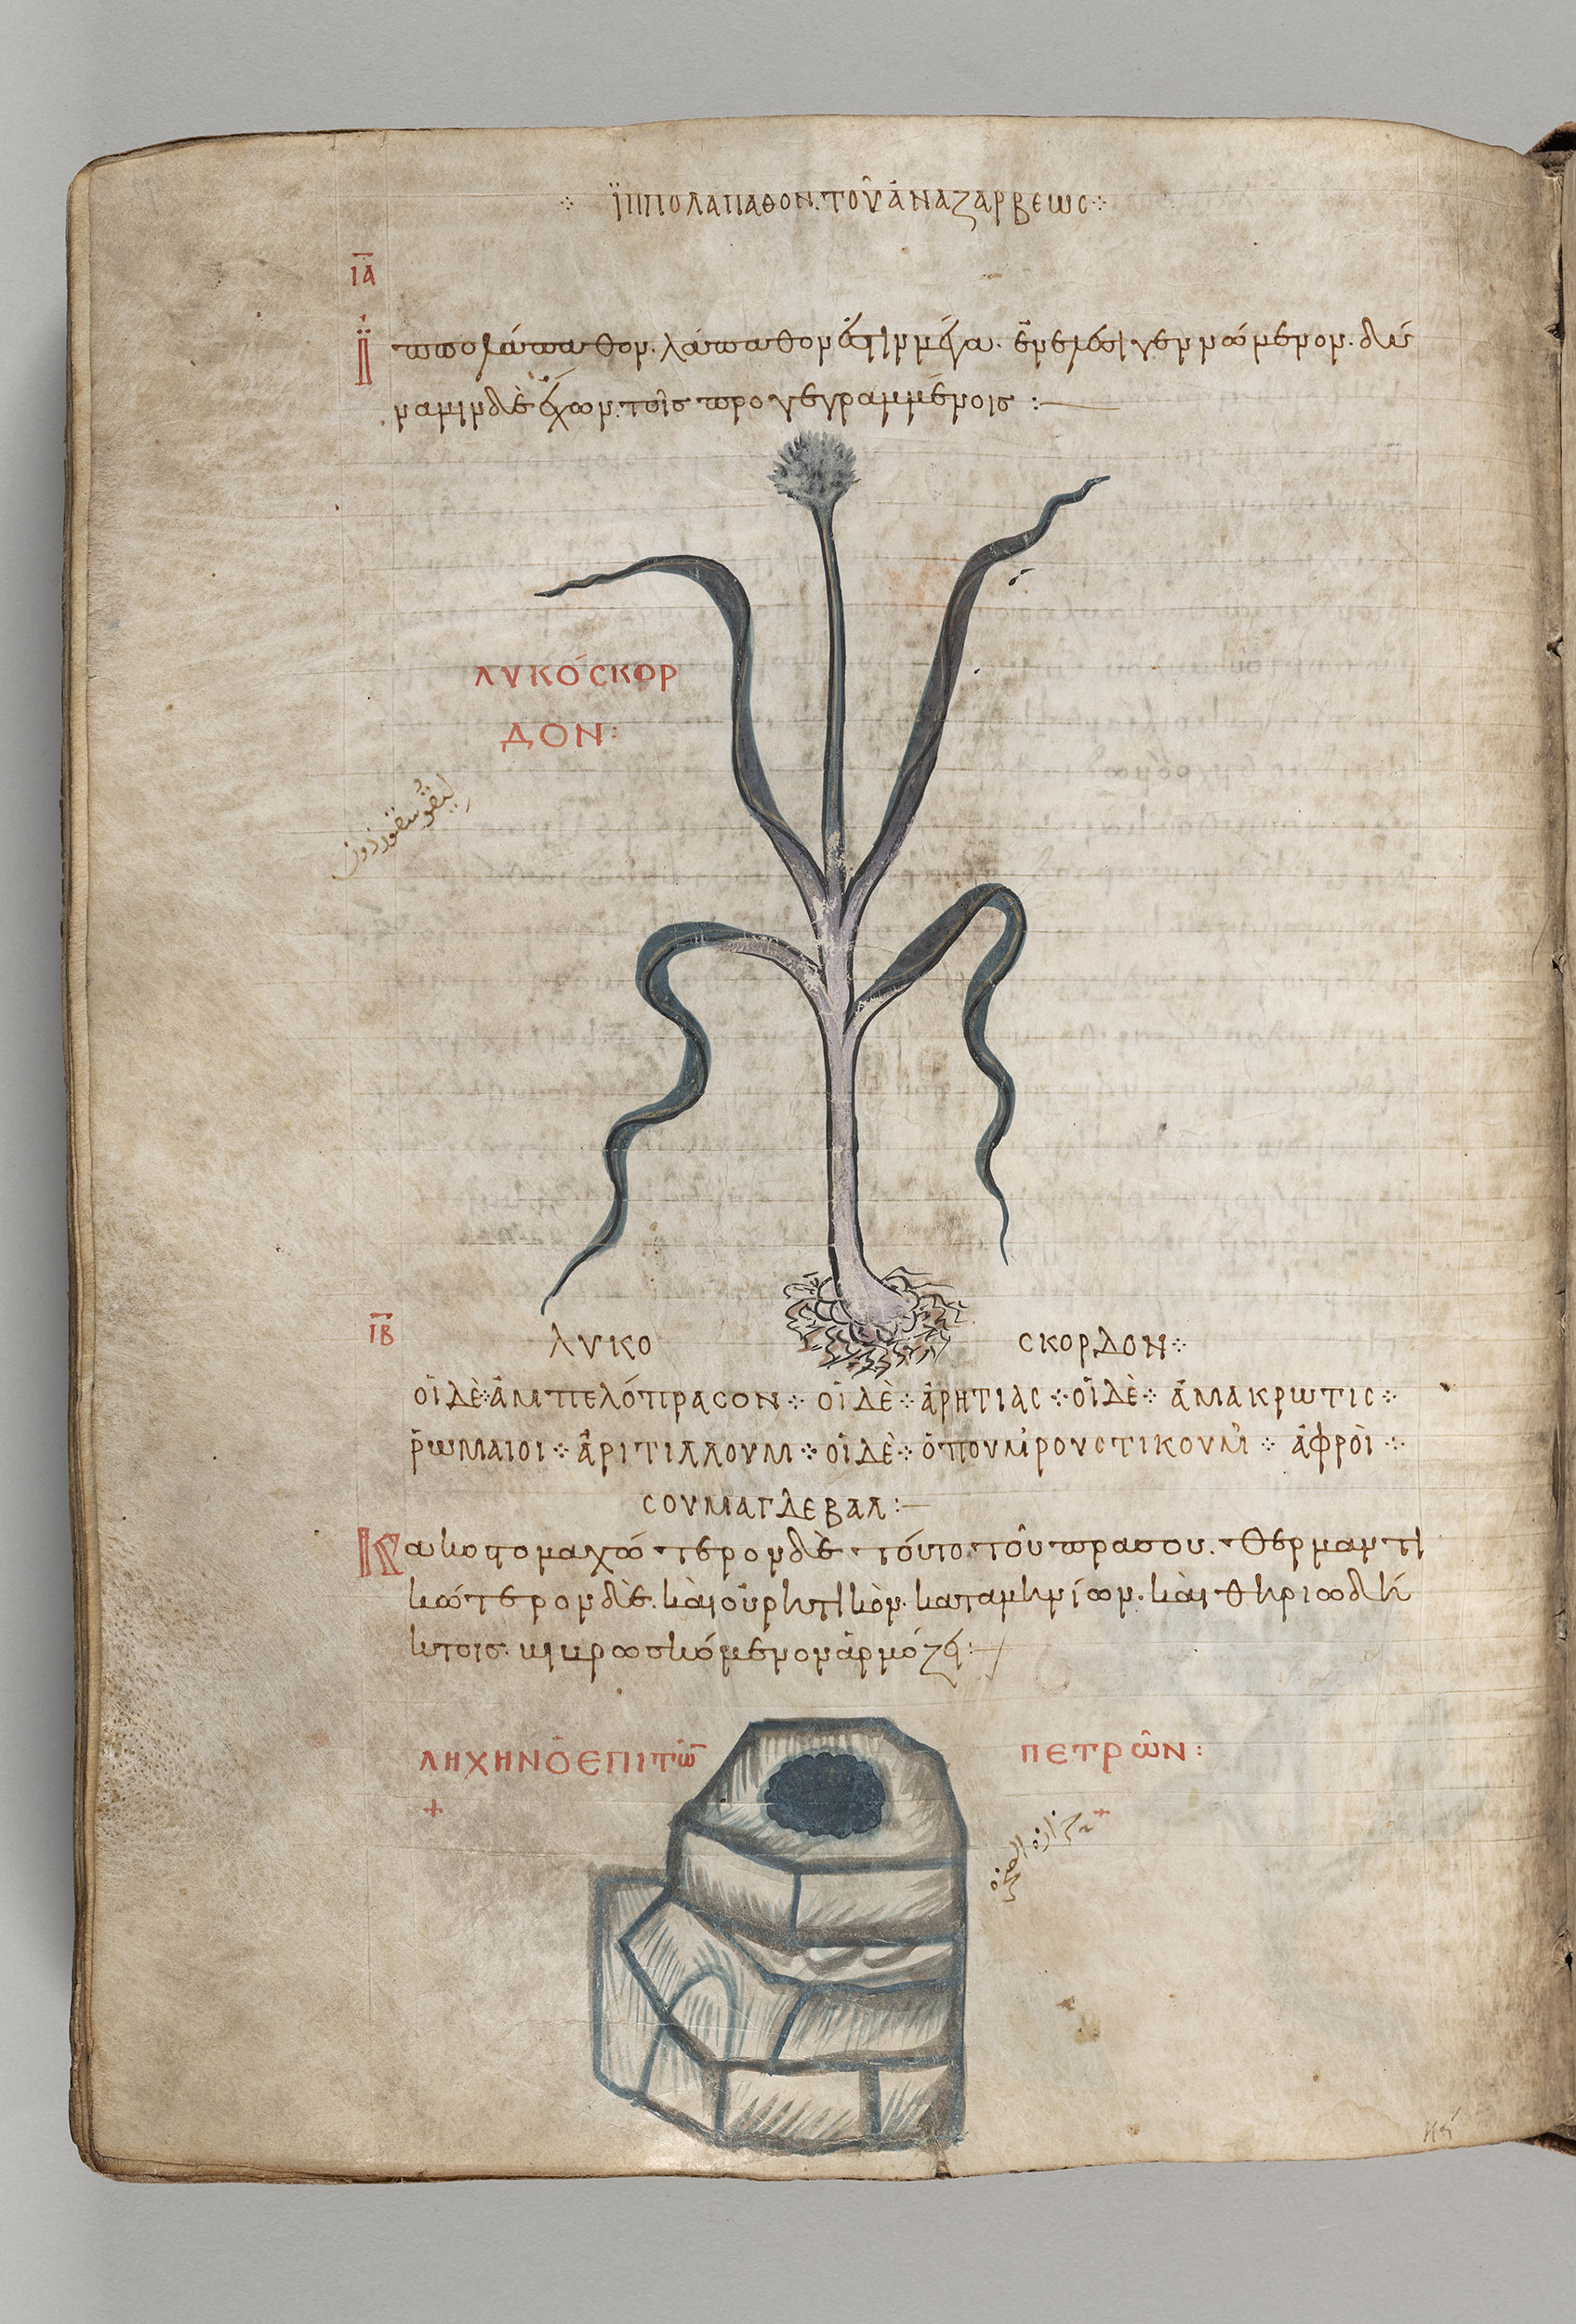 ⁘ ἵππολαπαθον. τοῦ ἀναζαρβεως ⁘
ΙΑ
Ἱπποłάπαθον. λάπαθον ἐστὶν μέγα. ἐν ἕλεσι γεννώμενον. δύ
ναμιν δὲ ἔχων. τοῖς προγεγραμμένοις :—
ΛΥΚΌΣΚΟΡ
ΔΟΝ:
ΙΒ
λυκο σκορδον ⁘
οἱ δὲ ⁘ ἀμπελόπρασον ⁘ οἱ δὲ ⁘ ἀρητιας ⁘ οἱ δὲ ⁘ ἀμακρωτις ⁘
ῥωμαιοι ⁘ ἀριτιλλουμ ⁘ οἱ δὲ ⁘ ὀπουμ ρουστικουμ ⁘ ἀφροὶ ⁘
σουμαγδεβαλ :—
Κακοστομαχώτερον δὲ τόυτο. τοῦ πρασου. θερμαντι
κώτερον δὲ. κὰι οὐρητικὸν. καταμηνίων. κὰι θηριοδή
κτοις. βιβρωσκόμενον ἁρμόζει :—
ΛΗΧΗΝ Ὁ ΕΠΙ ΤῶΝ ΠΕΤΡῶΝ :